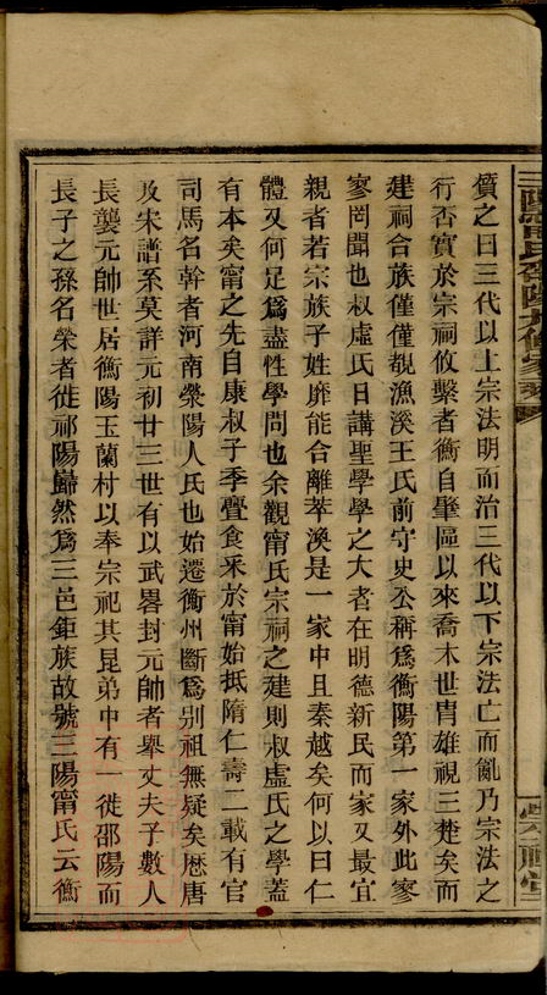 三陽甯氏邵陽九修家
儐之曰三代以上宗法明而治三代以下宗法亡而亂乃宗法之
行否實於宗祠攸繫者衡自肇區以來喬木世胄雄視三楚矣而
建祠合族僅僅覩漁溪王氏前守史公稱爲衡陽第一家外此寥
寥罔聞也叔虛氏日講聖學學之大者在明德新民而家又最宜
親者若宗族子姓靡能合離萃渙是一家中且秦越矣何以曰仁
體又何足爲盡性學問也余觀甯氏宗祠之建則叔虛氏之學蓋
有本矣甯之先自康叔子季亹食釆於甯始抵隋仁壽二載有官
司馬名幹者河南滎陽人氏也始遷衡州斷爲别祖無疑矣歷唐
及宋譜系莫詳元初廿三世有以武畧封元帥者舉丈夫子數人
長襲元帥世居衡陽玉蘭村以奉宗祀其昆弟中有一徙邵陽而
長子之孫名榮者徙祁陽巋然爲三邑鉅族故號三陽甯氏云衡